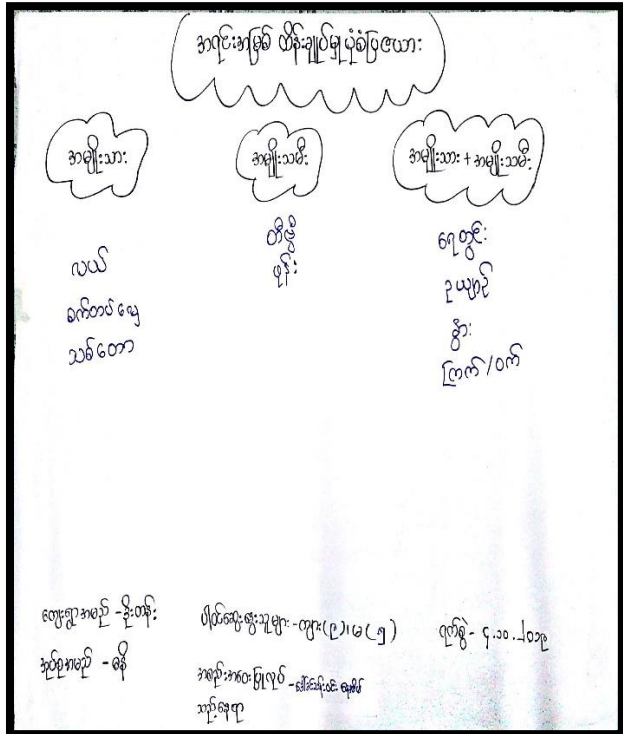 အရင်းအမြစ် ထိန်းချုပ်မှု ပုံစံပြဇယား
အမျိုးသား
အမျိုးသမီး
အမျိုးသား + အမျိုးသမီး
လယ်
စက်တပ်လှေ
သစ်တော
တီဗွီ
ဖုန်း
ရေတွင်း
ဥယျာဉ်
နွား
ကြက်/ဝက်
ကျေးရွာအမည် - ဒိုးတန်း
အုပ်စုအမည် - ဓနိ
ပါဝင်ဆွေးနွေးသူများ - ကျား(၉)၊ မ(၅)
အစည်းအဝေးပြုလုပ်
သည့်နေရာ
ရက်စွဲ - ၄.၁၀.၂၀၁၉